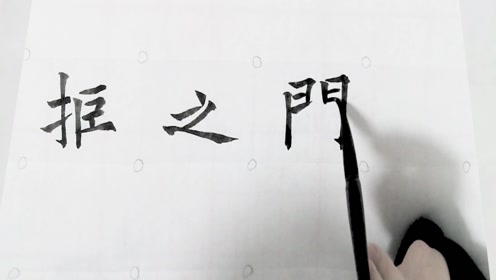 拒之門